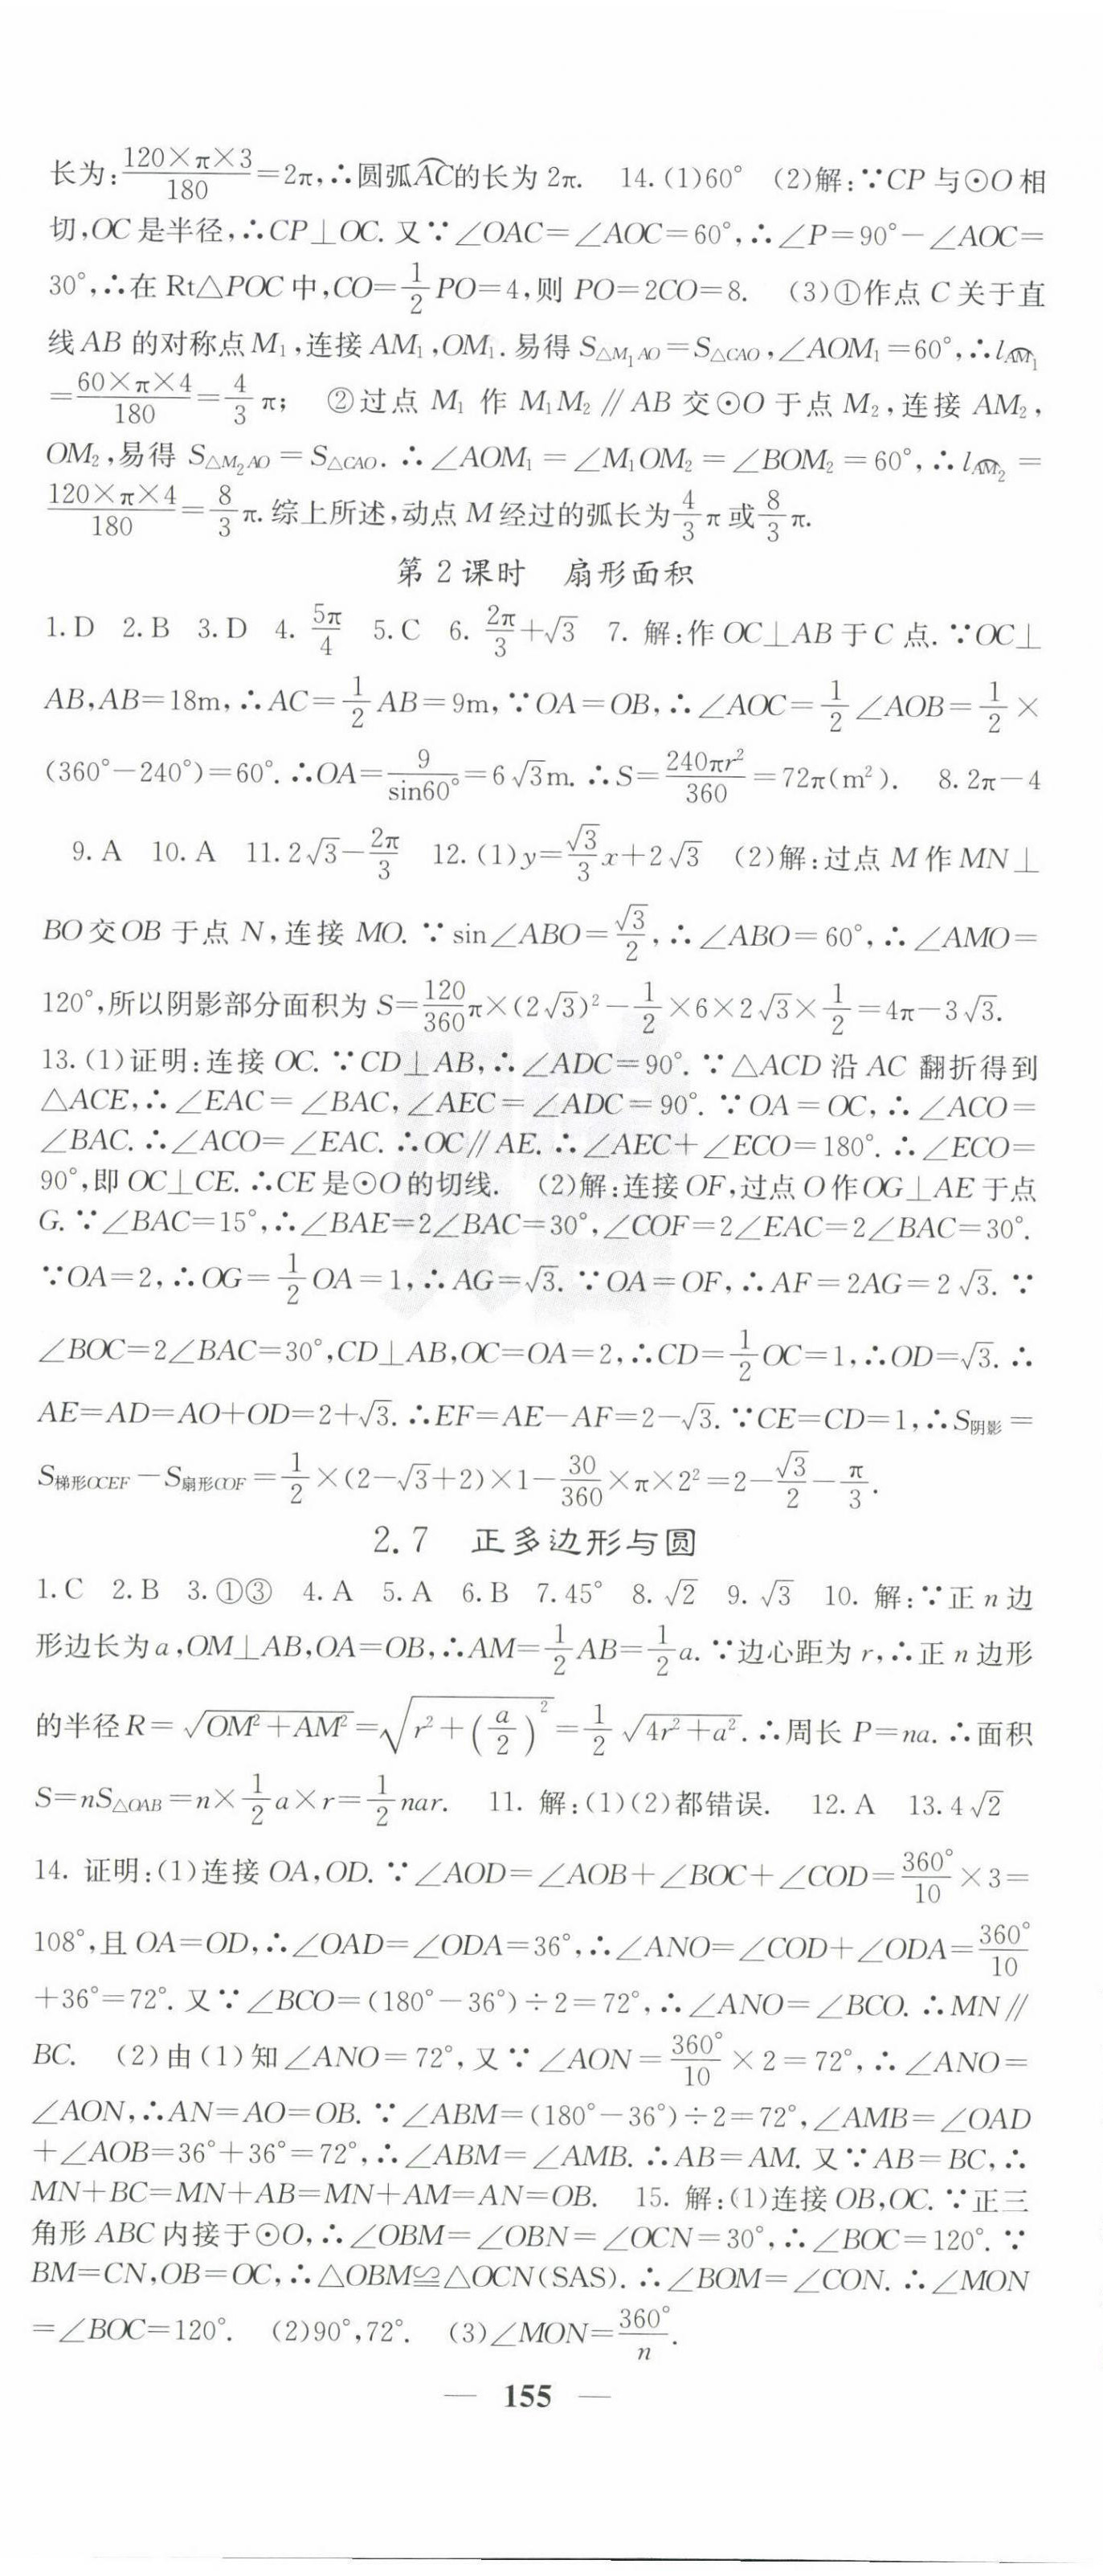 长为:120×π×3/180=2π,∴圆弧AC的长为 2π. 14.(1)60° (2)解:∵CP与⊙O相
切,OC是半径,∴CP⊥OC.又∵∠OAC=∠AOC=60°,∴∠P=90°-∠AOC=
30°,∴在Rt△POC中,CO=1/2PO=4,则PO=2CO=8. (3)①作点C关于直
线AB的对称点M₁,连接AM₁,OM₁.易得S△M₁AO=S△CAO,∠AOM₁=60°,∴lAM₁
=60×π×4/180=4/3π; ②过点M₁作M₁M₂∥AB交⊙O于点M₂,连接AM₂,
OM₂,易得S△M₂AO=S△CAO.∴∠AOM₁=∠M₁OM₂=∠BOM₂=60°,∴lAM₂=
120×π×4/180=8/3π.综上所述,动点M经过的弧长为4/3π或8/3π.
第2课时 扇形面积
1.D 2.B 3.D 4. 5π/4 5.C 6. 2π/3+√3 7. 解:作OC⊥AB于C点.∵OC⊥
AB,AB=18m,∴AC=1/2AB=9m,∵OA=OB,∴∠AOC=1/2∠AOB=1/2×
(360°-240°)=60°.∴OA=9/sin60°=6√3m.∴S=240πr²/360=72π(m²). 8.2π-4
9.A 10.A 11.2√3-2π/3 12.(1)y=√3/3x+2√3 (2)解:过点M作MN⊥
BO交OB于点N,连接MO.∵sin∠ABO=√3/2,∴∠ABO=60°,∴∠AMO=
120°,所以阴影部分面积为S=120/360π×(2√3)²-1/2×6×2√3×1/2=4π-3√3.
13.(1)证明:连接OC.∵CD⊥AB,∴∠ADC=90°.∵△ACD沿AC翻折得到
△ACE,∴∠EAC=∠BAC,∠AEC=∠ADC=90°.∵OA=OC,∴∠ACO=
∠BAC.∴∠ACO=∠EAC.∴OC∥AE.∴∠AEC+∠ECO=180°.∴∠ECO=
90°,即OC⊥CE.∴CE是⊙O的切线. (2)解:连接OF,过点O作OG⊥AE于点
G.∵∠BAC=15°,∴∠BAE=2∠BAC=30°,∠COF=2∠EAC=2∠BAC=30°.
∵OA=2,∴OG=1/2OA=1,∴AG=√3.∵OA=OF,∴AF=2AG=2√3.∵
∠BOC=2∠BAC=30°,CD⊥AB,OC=OA=2,∴CD=1/2OC=1,∴OD=√3.∴
AE=AD=AO+OD=2+√3.∴EF=AE-AF=2-√3.∵CE=CD=1,∴S阴影=
S梯形OCEF-S扇形COF=1/2×(2-√3+2)×1-30/360×π×2²=2-√3/2-π/3.
2.7 正多边形与圆
1.C 2.B 3.①③ 4.A 5.A 6.B 7.45° 8.√2 9.√3 10. 解:∵正n边
形边长为a,OM⊥AB,OA=OB,∴AM=1/2AB=1/2a.∵边心距为r,∴正n边形
的半径R=√(OM²+AM²)=√(r²+(a/2)²)=1/2√(4r²+a²).∴周长P=na.∴面积
S=nS△OAB=n×1/2a×r=1/2nar. 11. 解:(1)(2)都错误. 12.A 13.4√2
14. 证明:(1)连接OA,OD.∵∠AOD=∠AOB+∠BOC+∠COD=360°/10×3=
108°,且OA=OD,∴∠OAD=∠ODA=36°,∴∠ANO=∠COD+∠ODA=360°/10
+36°=72°.又∵∠BCO=(180°-36°)÷2=72°,∴∠ANO=∠BCO.∴MN∥
BC. (2)由(1)知∠ANO=72°,又∵∠AON=360°/10×2=72°,∴∠ANO=
∠AON,∴AN=AO=OB.∵∠ABM=(180°-36°)÷2=72°,∠AMB=∠OAD
+∠AOB=36°+36°=72°,∴∠ABM=∠AMB.∴AB=AM.又∵AB=BC,∴
MN+BC=MN+AB=MN+AM=AN=OB. 15. 解:(1)连接OB,OC.∵正三
角形ABC内接于⊙O,∴∠OBM=∠OBN=∠OCN=30°,∴∠BOC=120°.∵
BM=CN,OB=OC,∴△OBM≌△OCN(SAS).∴∠BOM=∠CON.∴∠MON
=∠BOC=120°. (2)90°,72°. (3)∠MON=360°/n.
— 155 —